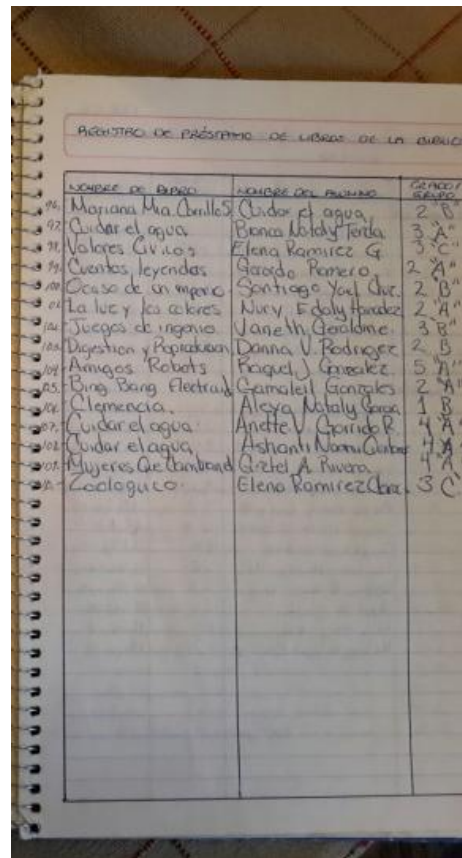 REGISTRO DE PRÉSTAMO DE LIBROS DE LA BIBLIO
NOMBRE DE LIBRO NOMBRE DEL ALUMNO GRADO/GRUPO
96. Mariana Mia Carrillo S Cuidar el agua 2 "B"
97. Cuidar el agua Bianca Nataly Terda 3 "A"
98. Valores Civicos Elena Ramirez G 3 "C"
99. Cuentos, leyendas Gerardo Romero 2 "A"
100. Ocaso de un imperio Santiago Yael Cruz. 2 "B"
01. La luz y los colores Nury Edaly 2 "A"
102. Juegos de ingenio Vaneth Geraldine. 3 B"
103. Digestion y Reproduccion Danna V. Rodriguez 2 B
104. Amigos Robots Raquel J Gonzalez 5 A"
105. Bing Bang Gamaleil Gonzales 2 "A"
106. Clemencia. Alexa Nataly Garcia 1 B
107. Cuidar el agua Anette V. Garrido R. 4 "A"
108. Cuidar el agua Ashanti 4 A
109. Mujeres Que Cambiand Giztel A. Rivera 4 A
Zoologuico. Elena Ramirez 3 C"